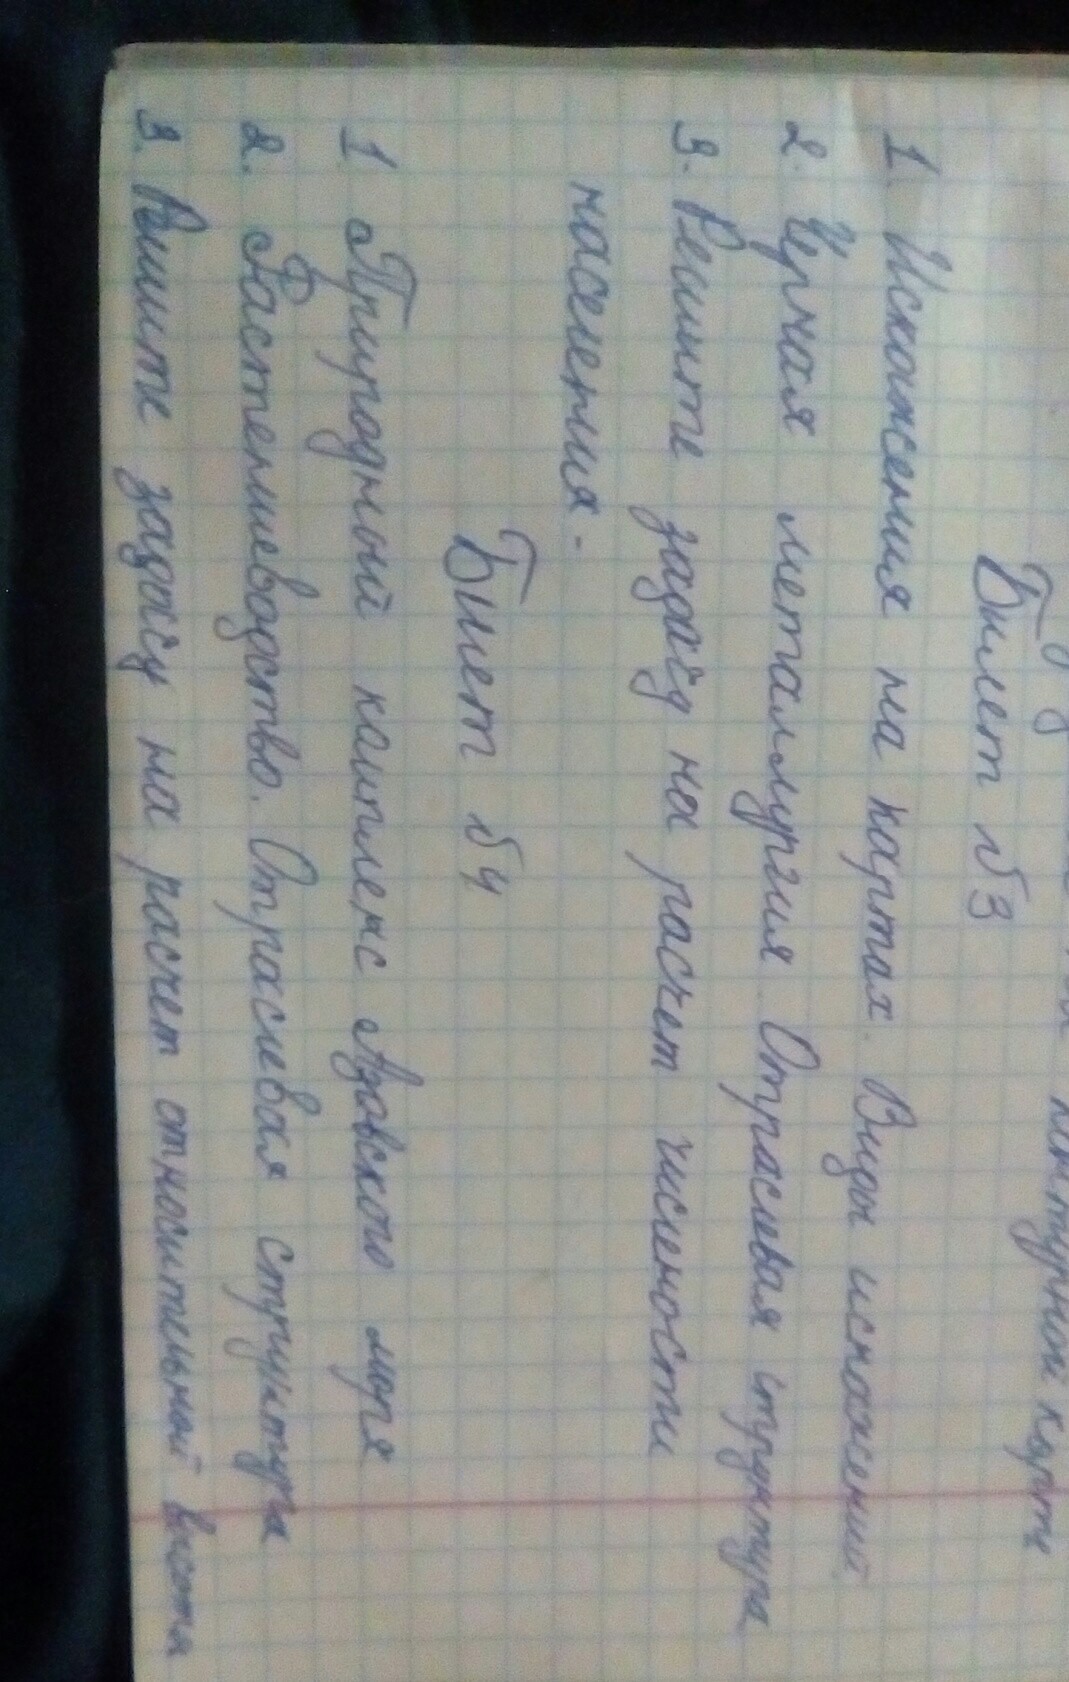 контурной карте
Билет №3
1. Искажения на картах. Виды искажений
2. Черная металлургия. Отраслевая структура
3. Решите задачу на расчет численности
населения.
Билет №4
1 Природный комплекс Азовского моря
2. Растениеводство. Отраслевая структура
3. Решите задачу на расчет относительной высоты